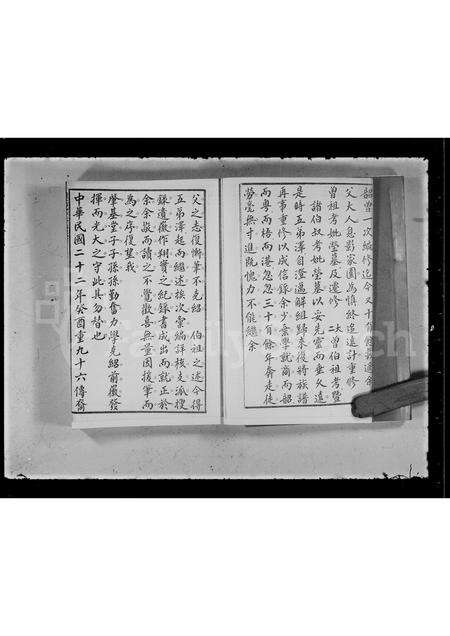 韶曾一次編修迄今又十有餘載適余
父大人息影家園為慎終追遠計重修
曾祖考妣塋墓及遷修 太曾伯祖考暨
諸伯叔考妣塋墓以妥先靈而垂久遠
是時五弟澤自澄邁解組歸來復將族譜
再事重修以成信錄余少棄學就商而韶
而粵而梧而港忽忽三十有餘年奔走徒
勞毫無寸進既愧力不能繼余
父之志復慚筆不克紹 伯祖之述今得
五弟澤起而繼述族次彙編詳核支派搜
錄遺徽作翔實之紀錄書成出而就正於
余余敬而讀之不覺歡喜無量因援筆而
為之序復望我
肇基堂子子孫孫勤奮力學克紹前徽發
揮而光大之守此具勿替也
中華民國二十二年癸酉重九十六傳裔